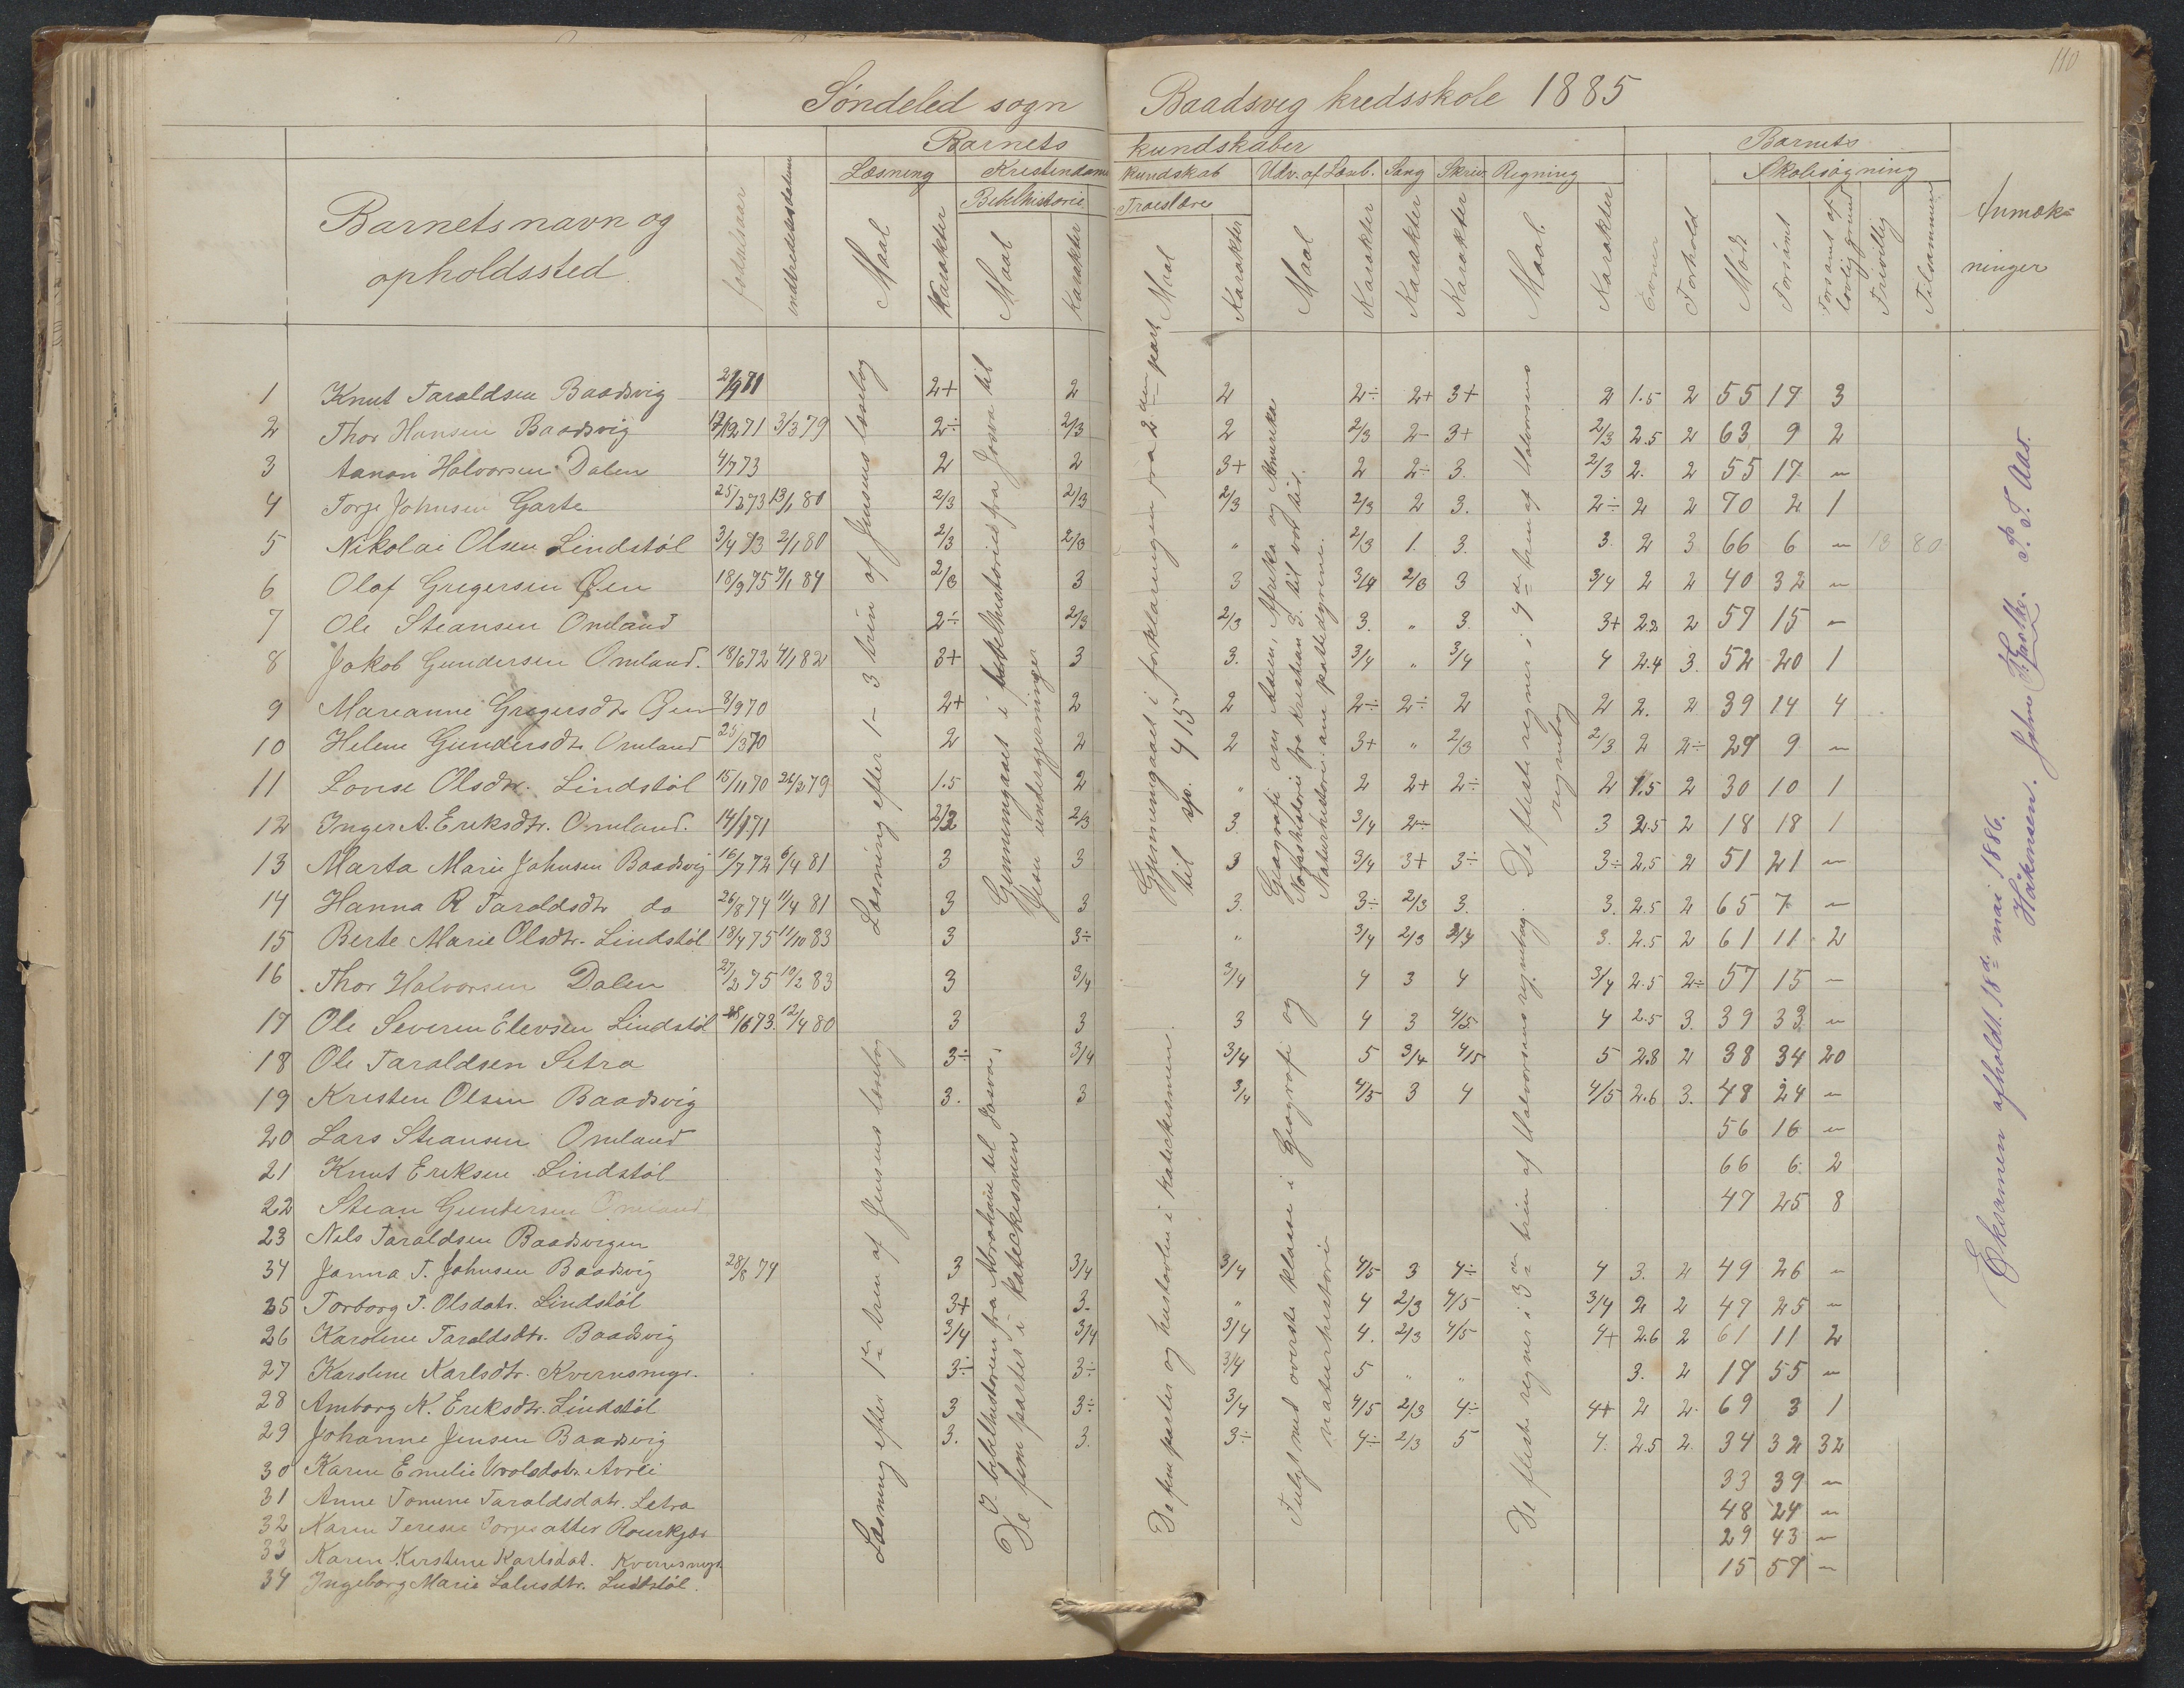 110
Söndeled sogn Baadsvig kredsskole 1885
Barnets kundskaber Barnets
Læsning Kristendoms kundskab Udv. af Læseb. Sang Skriv. Regning Skolesøgning
Bibelhistorie Troeslære
Barnets navn og opholdssted
fødselsaar
indtrædelsesdatum
Maal Karakter Maal Karakter Maal Karakter Maal Karakter Karakter Karakter Maal Karakter Evner Forhold Mødt Forsømt Forsømt af lovlig grund Frivillig Tilsammen
Anmærk-
ninger
1 Knut Taraldsen Baadsvig 2+ 2 2 2÷ 2+ 3+ 2 1.5 2 55 17 3
2 Thor Hansen Baadsvig 17/12 71 3/3 79 2÷ 2/3 2 2/3 2- 3+ 2/3 2.5 2 63 9 2
3 Aanon Halvorsen Dalen 4/7 73 2 2 3+ 2 2÷ 3. 2/3 2. 2 55 17 "
4 Torje Johnsen Garte 25/3 73 13/1 80 2/3 2/3 2/3 2/3 2 3. 2÷ 2 2 70 2 1
5 Nikolai Olsen Lindstøl 3/4 73 2/1 80 2/3 2/3 " 2/3 1. 3. 3. 2 3 66 6 " 18 80
6 Olaf Gregersen Øen 18/9 75 7/1 84 2/3 3 3 3/4 2/3 3 3/4 2 2 40 32 "
7 Ole Steansen Omland 2÷ 2/3 2/3 3. " 3. 3+ 2.2 2 57 15 "
8 Jakob Gundersen Omland. 18/6 72 4/1 82 3+ 3 3. 3/4 " 3/4 4 2.4 3. 52 20 1
9 Marianne Gregersdtr Øen 3/9 70 2+ 2 2 2÷ 2÷ 2 2 2. 2 39 14 4
10 Helene Gundersdtr Omland 25/3 70 2 2 2 3+ " 2/3 2/3 2 2÷ 29 9 "
11 Lovise Olsdtr. Lindstøl 15/11 70 26/3 79 1.5 2 " 2 2+ 2÷ 2 1.5 2 30 10 1
12 Inger A. Eriksdtr. Omland. 14/1 71 2/3 2/3 3. 3/4 2÷ 3 2.5 2 18 18 1
13 Marta Marie Johnsen Baadsvig 16/7 72 6/4 81 3 3 3 3/4 3+ 3÷ 3÷ 2.5 2 51 21 "
14 Hanna R Taraldsdtr do 26/8 74 11/4 81 3 3 3. 3÷ 2/3 3. 3. 2.5 2 65 7 "
15 Berte Marie Olsdtr. Lindstøl 18/4 75 11/10 83 3 3÷ " 3/4 2/3 3/4 3. 2.5 2 61 11 2
16 Thor Halvorsen Dalen 27/2 75 10/2 83 3 3/4 3/4 4 3 4 3/4 2.5 2÷ 57 15 -
17 Ole Severin Elevsen Lindstøl 12/4 80 3 3 3 4 3 4/5 4 2.5 3. 39 33 "
18 Ole Taraldsen Setra 3÷ 3/4 3/4 5 3/4 4/5 5 2.8 2 38 34 20
19 Kristen Olsen Baadsvig 3. 3 3/4 4/5 3 4 4/5 2.6 3. 48 24 "
20 Lars Steansen Omland 56 16 "
21 Knut Eriksen Lindstøl 66 6. 2
22 Stean Gundersen Omland 47 25 8
23 Nils Taraldsen Baadsvigen
34 Janna T. Johnsen Baadsvig 28/8 74 3 3/4 3/4 4/5 3 4÷ 4 3. 2 49 26 "
25 Torborg T. Olsdatr. Lindstøl 3+ 3. " 4 2/3 4/5 3/4 2 2 47 25 "
26 Karoline Taraldsdtr. Baadsvig 3/4 3/4 3/4 4. 2/3 4/5 4+ 2.6 2 61 11 2
27 Karoline Karlsdtr. 3÷ 3÷ 3/4 5 " " 3. 2 17 55 "
28 Amborg K. Eriksdtr. Lindstøl 3 3÷ 3/4 4/5 2/3 4÷ 4+ 2 2. 69 3 1
29 Johanne Jensen Baadsvig 3. 3. 3÷ 4÷ 2/3 5 4. 2.5 2. 34 32 32
30 Karen Emelie 33 39 "
31 Anne Tomine Taraldsdatr. Setra 48 24 "
32 Karen Terese 29 43 "
33 Karen Kirstine Karlsdat. 15 57 "
34 Ingeborg Marie Lindstøl.
Læsning efter 1- 3 trin af Jensens læsebog
Gjennemgaaet i bibelhistorie fra Josva til
Jesu undergjerninger
Gjennemgaaet i forklaringen fra 2den part
til sp. 415
Geografi om Asien, Afrika og Amerika
Norgeshistorie fra Kristian 3. til vor tid.
Naturhistorie: ane pattedyrene.
De fleste regner i 4de trin af Halvorsens
regnebog
Læsning efter 1ste trin af Jensens læsebog
I bibelhistorien fra Abraham til Josva.
De fem parter i katekismen
De fem parter og hustavlen i katekismen.
Fulgt med øverste klasse i Geografi og
naturhistorie
De fleste regner i 3de trin af Halvorsens regnebog.
Eksamen afholdt 18de mai 1886.
Håkensen. T. T. Aas.